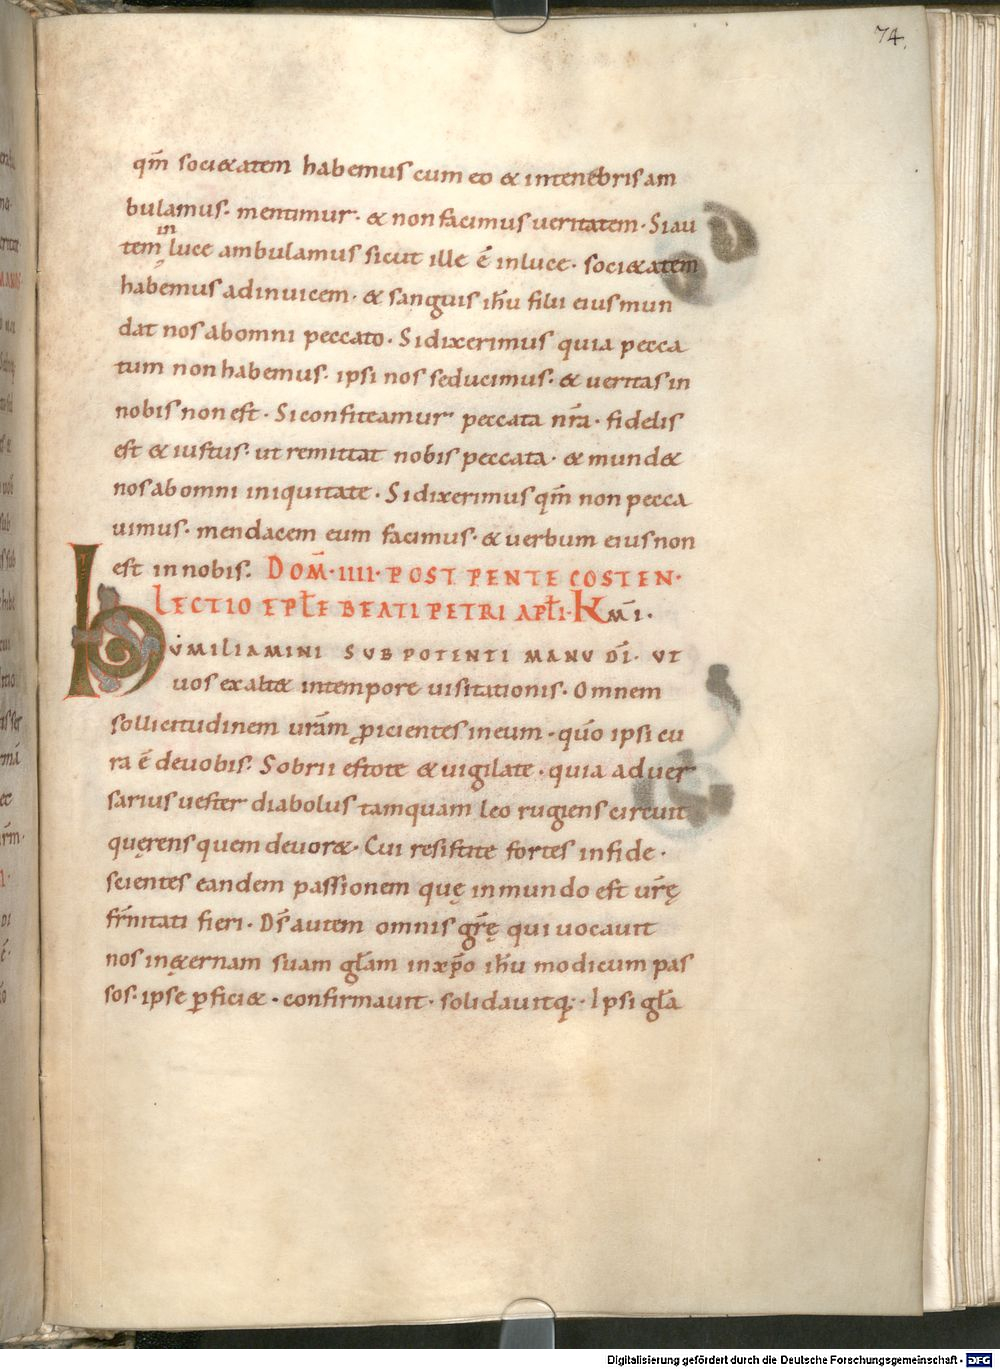 74.
qm̄ societatem habemus cum eo & intenebris am
bulamus· mentimur· & non facimus ueritatem· Si au
tem in luce ambulamus sicut ille ē inluce· societatem
habemus adinuicem· & sanguis ih̄u filii eius mun
dat nos abomni peccato· Si dixerimus quia pecca
tum non habemus· ipsi nos seducimus· & ueritas in
nobis non est· Si confiteamur peccata nr̄a· fidelis
est & iustus· ut remittat nobis peccata· & mund&
nos abomni iniquitate· Si dixerimus qm̄ non pecca
uimus· mendacem eum facimus· & uerbum eius non
est in nobis· DOM̄·IIII·POST PENTECOSTEN·
LECTIO EPĪE BEATI PETRI APL̄I· Km̄i·
hUMILIAMINI SUB POTENTI MANU DĪ· UT
uos exalt& intempore uisitationis· Omnem
sollicitudinem ur̄am proicientes in eum· quō ipsi cu
ra ē deuobis· Sobrii estote & uigilate· quia aduer
sarius uester diabolus tamquam leo rugiens circuit
quęrens quem deuor&· Cui resistite fortes in fide·
scientes eandem passionem quę in mundo est ur̄ę
fr̄nitati fieri· DS̄ autem omnis gr̄ę qui uocauit
nos in ęternam suam gl̄am in xp̄o ih̄u modicum pas
sos· ipse ꝑfici&· confirmauit· solidauitq;· Ipsi gl̄a
Digitalisierung gefördert durch die Deutsche Forschungsgemeinschaft - DFG